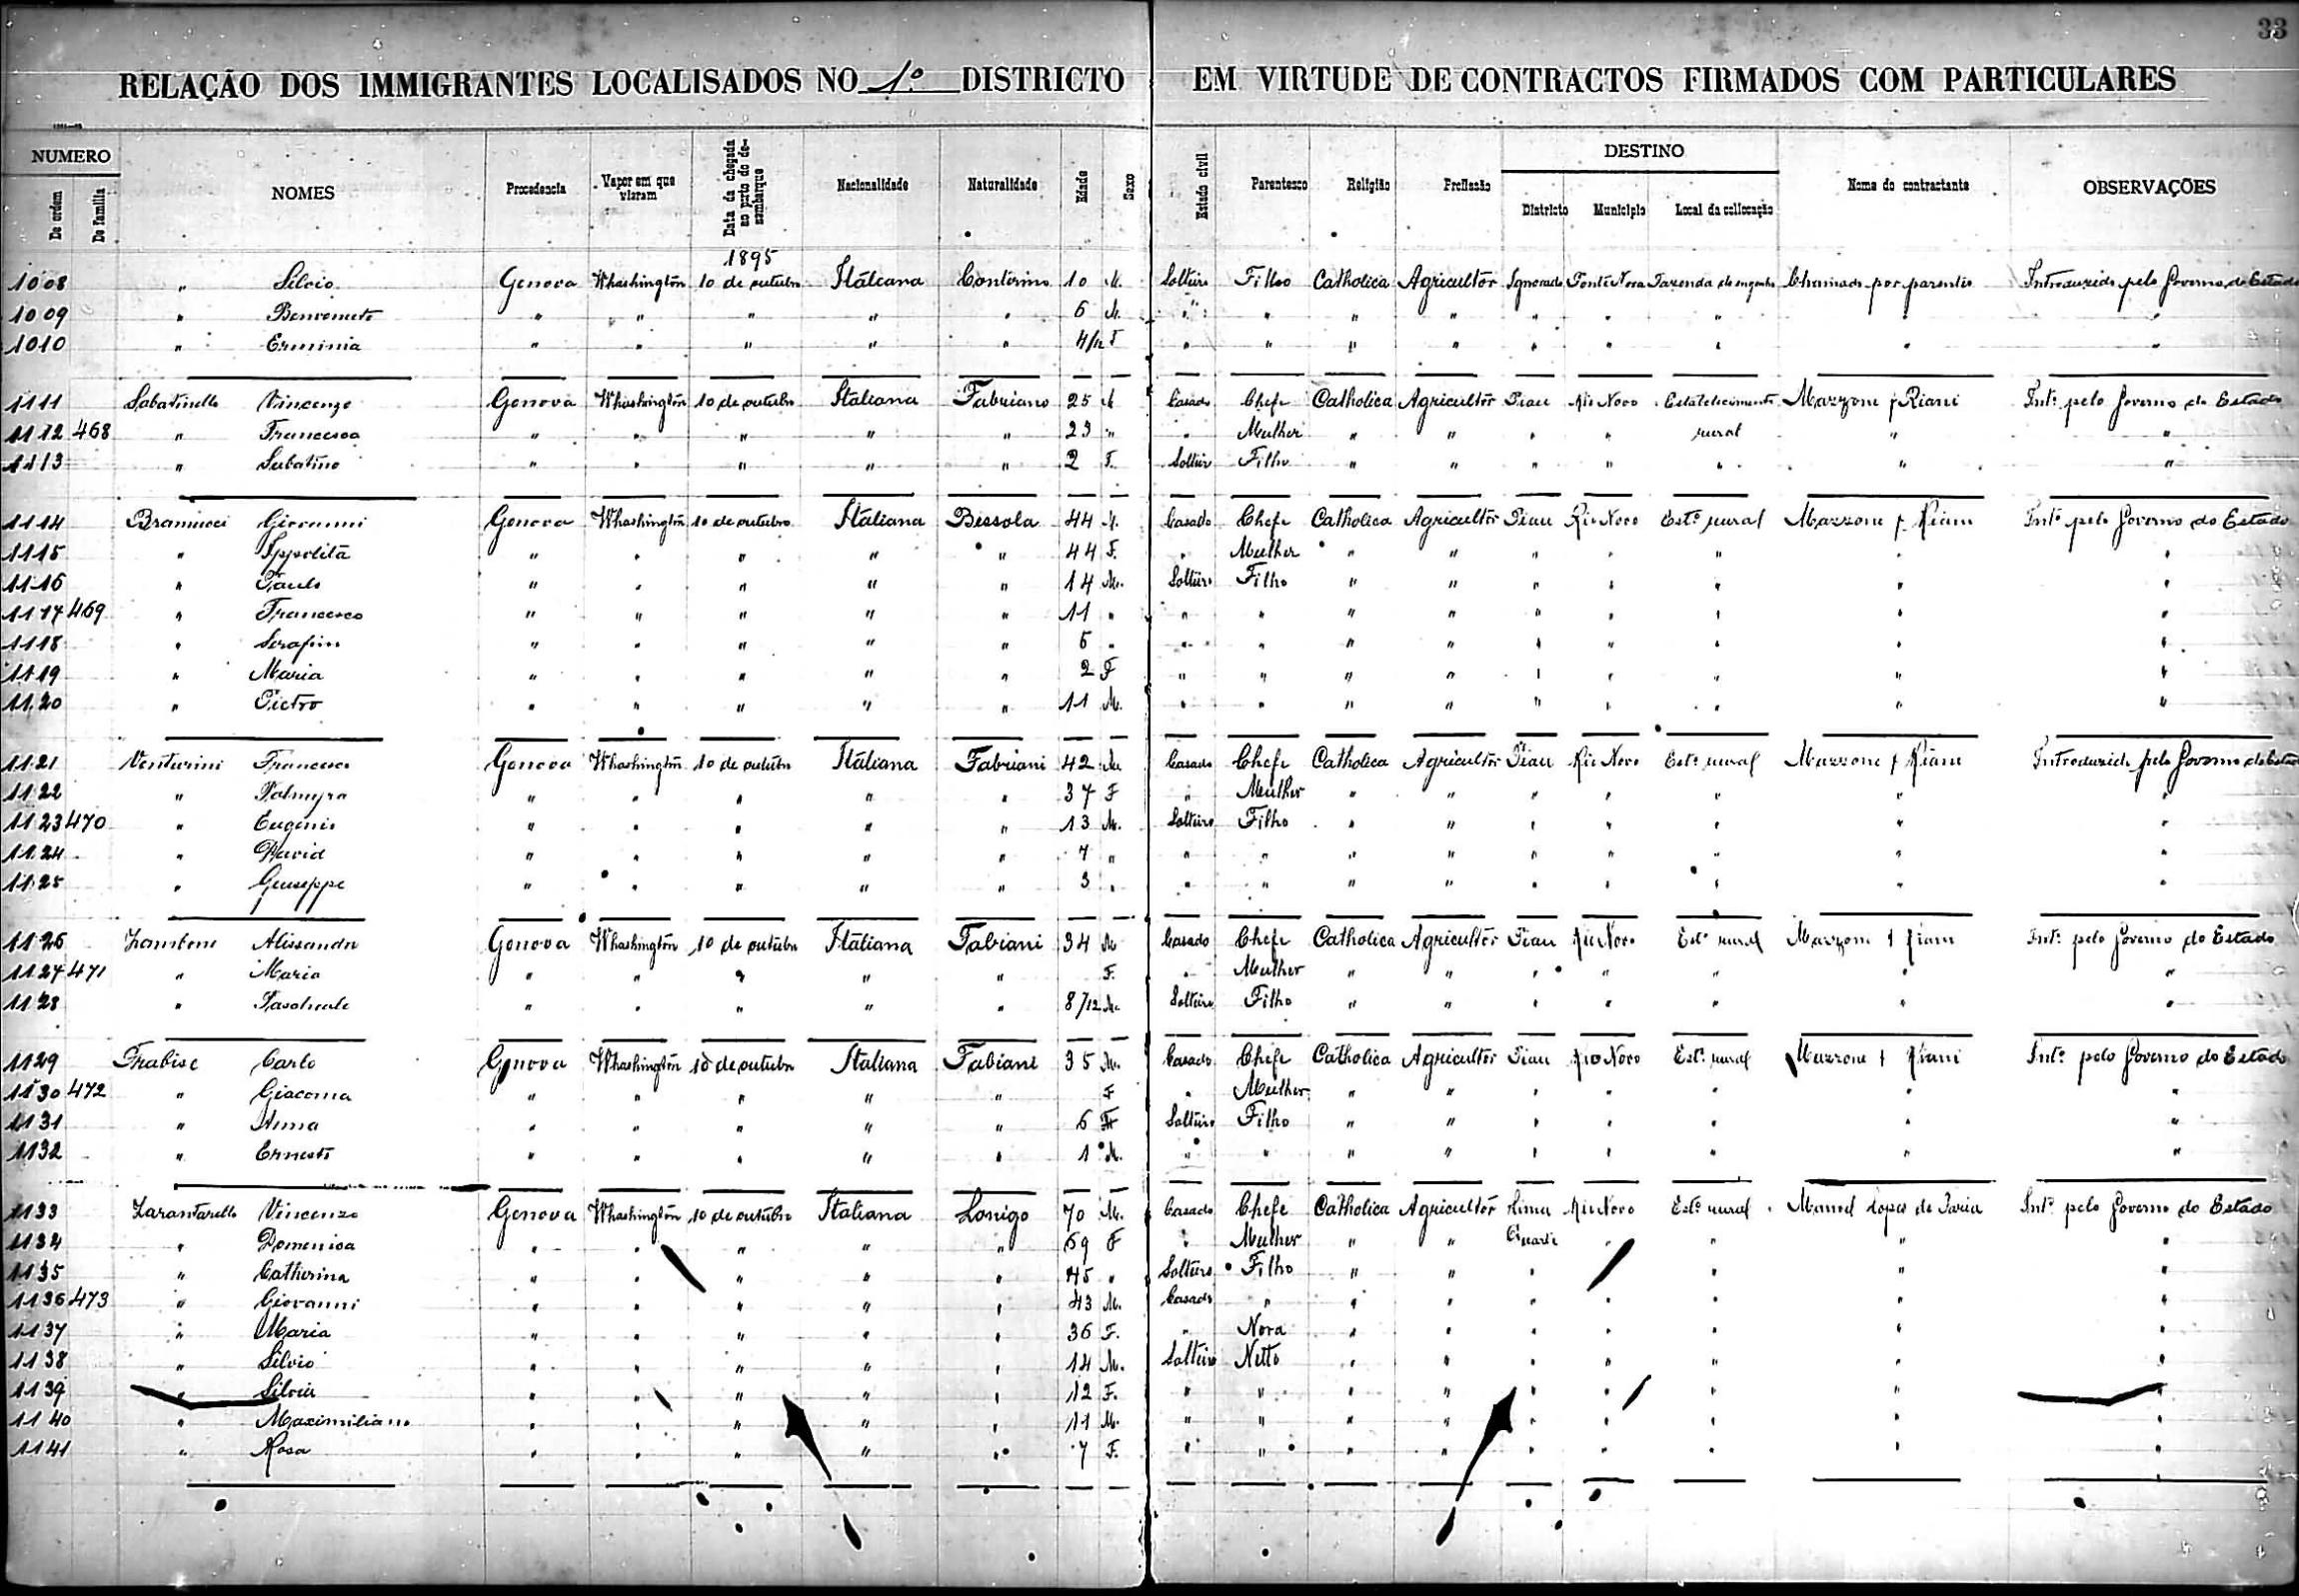 33
RELAÇÃO DOS IMMIGRANTES LOCALISADOS NO 1.º DISTRICTO EM VIRTUDE DE CONTRACTOS FIRMADOS COM PARTICULARES
NUMERO De ordem De familia NOMES Procedencia Vapor em que vieram Data da chegada ao porto do desembarque Nacionalidade Naturalidade Edade Sexo Estado civil Parentesco Religião Profissão DESTINO Districto Municipio Local da collocação Nome do contractante OBSERVAÇÕES
1895
1008 " Silvio Genova Whashington 10 de outubro Italiana 10 M. Solteiro Filho Catholica Agricultor Ignorado Ponte Nova Fazenda do engenho Chamado por parentes Introduzido pelo Governo do Estado
1009 " Benvenuto " " " " " 6 M. " " " " " " " " "
1010 " Erminia " " " " " 4/12 F " " " " " " " " "
1111 Sabatinello Vincenzo Genova Whashington 10 de outubro Italiana Fabriano 25 M Casado Chefe Catholica Agricultor Piau Rio Novo Estabelecimento Mazzone & Riani Int.º pelo Governo do Estado
1112 468 " Francesca " " " " " 23 " " Mulher " " " " rural " "
1113 " Sabatino " " " " " 2 F. Solteiro Filho " " " " " " "
1114 Bramucci Giovanni Genova Whashington 10 de outubro Italiana Bessola 44 M. Casado Chefe Catholica Agricultor Piau Rio Novo Est.º rural Mazzone & Riani Int.º pelo Governo do Estado
1115 " Ippolita " " " " " 44 F. " Mulher " " " " " " "
1116 " Paulo " " " " " 14 M. Solteiro Filho " " " " " " "
1117 469 " Francesco " " " " " 11 " " " " " " " " " "
1118 " Serafino " " " " " 6 " " " " " " " " " "
1119 " Maria " " " " " 2 F " " " " " " " " "
1120 " Pietro " " " " " 11 M. " " " " " " " " "
1121 Venturini Francesco Genova Whashington 10 de outubro Italiana Fabriani 42 M Casado Chefe Catholica Agricultor Piau Rio Novo Est.º rural Mazzone & Riani Introduzido pelo Governo do Estado
1122 " Palmyra " " " " " 37 F " Mulher " " " " " " "
1123 470 " Eugenio " " " " " 13 M. Solteiro Filho " " " " " " "
1124 " David " " " " " 7 " " " " " " " " " "
1125 " Giuseppe " " " " " 3 " " " " " " " " " "
1126 Zamboni Alissandro Genova Whashington 10 de outubro Italiana Fabiani 34 M Casado Chefe Catholica Agricultor Piau Rio Novo Est.º rural Mazzone & Riani Int.º pelo Governo do Estado
1127 471 " Maria " " " " " F. " Mulher " " " " " " "
1128 " " " " " " 8/12 M. Solteiro Filho " " " " " " "
1129 Frabise Carlo Genova Whashington 10 de outubro Italiana Fabiani 35 M. Casado Chefe Catholica Agricultor Piau Rio Novo Est.º rural Mazzone & Riani Int.º pelo Governo do Estado
1130 472 " Giacoma " " " " " F " Mulher " " " " " " "
1131 " Anna " " " " " 6 F Solteiro Filho " " " " " " "
1132 " Ernesto " " " " " 1 M. " " " " " " " " "
1133 Zarantarello Vincenzo Genova Whashington 10 de outubro Italiana Lonigo 70 M. Casado Chefe Catholica Agricultor Lima Rio Novo Est.º rural Manoel Lopes de Faria Int.º pelo Governo do Estado
1134 " Domenica " " " " " 69 F " Mulher " " Duarte " " " "
1135 " Catherina " " " " " 45 " Solteiro Filho " " " " " " "
1136 473 " Giovanni " " " " " 43 M. Casado " " " " " " " "
1137 " Maria " " " " " 36 F. " Nora " " " " " " "
1138 " Silvio " " " " " 14 M. Solteiro Netto " " " " " " "
1139 " Silvia " " " " " 12 F. " " " " " " " " "
1140 " Maximiliano " " " " " 11 M. " " " " " " " " "
1141 " Rosa " " " " " 7 F. " " " " " " " " "